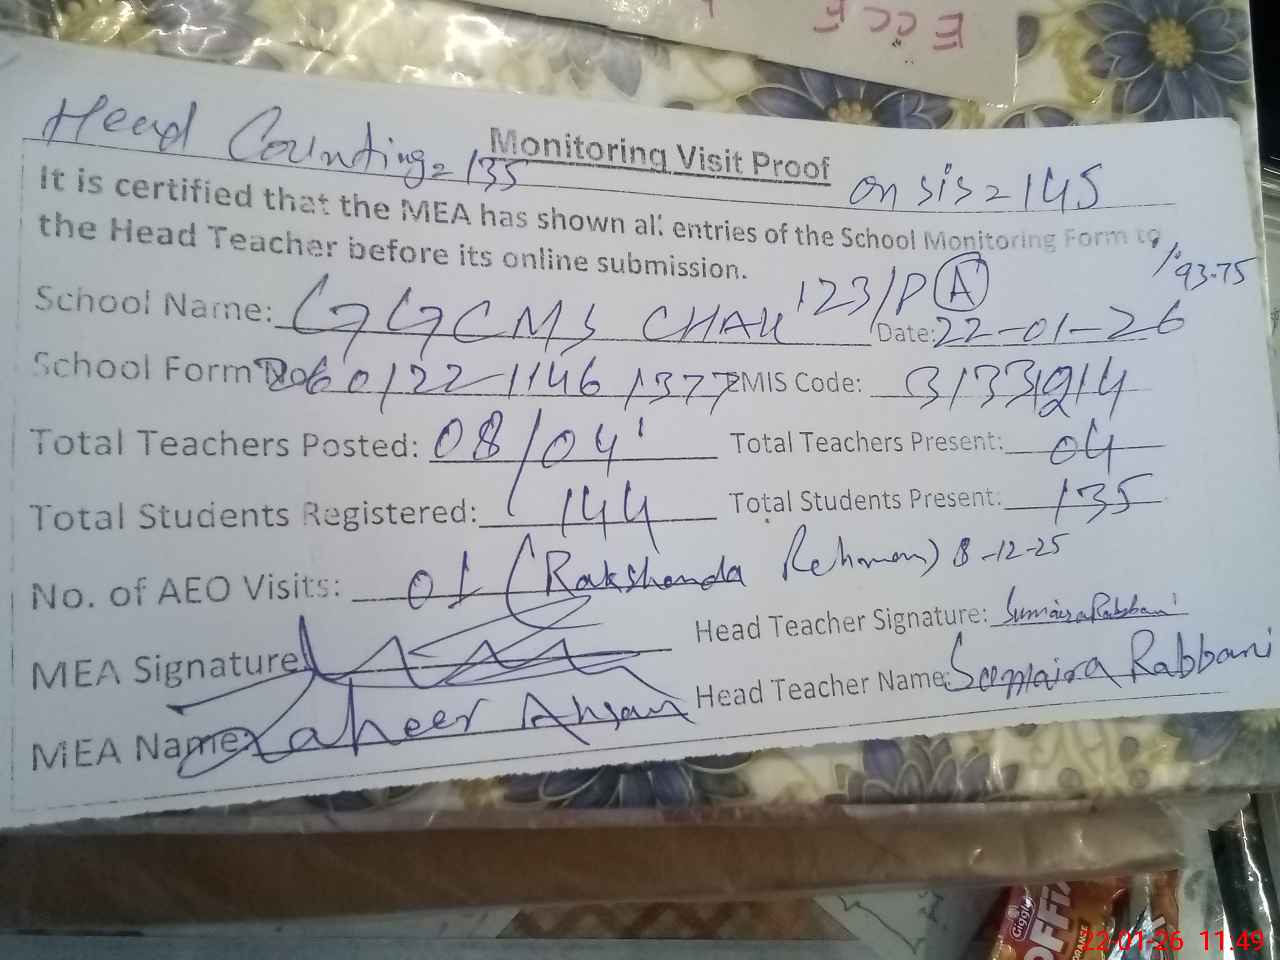 ECCE
Head Counting = 135
Monitoring Visit Proof
on sis = 145
It is certified that the MEA has shown all entries of the School Monitoring Form to
the Head Teacher before its online submission.
%93.75
School Name: GGCMS CHAK 123/P (A) Date: 22-01-26
School Form No 60122-11461377 EMIS Code: 31331214
Total Teachers Posted: 08/04 Total Teachers Present: 04
Total Students Registered: 144 Total Students Present: 135
No. of AEO Visits: 01 (Rakshanda Rehman) 8-12-25
MEA Signature Head Teacher Signature: Sumaira Rabbani
MEA Name: Zaheer Ahsan Head Teacher Name: Sumaira Rabbani
Giggly
22-01-26 11.49